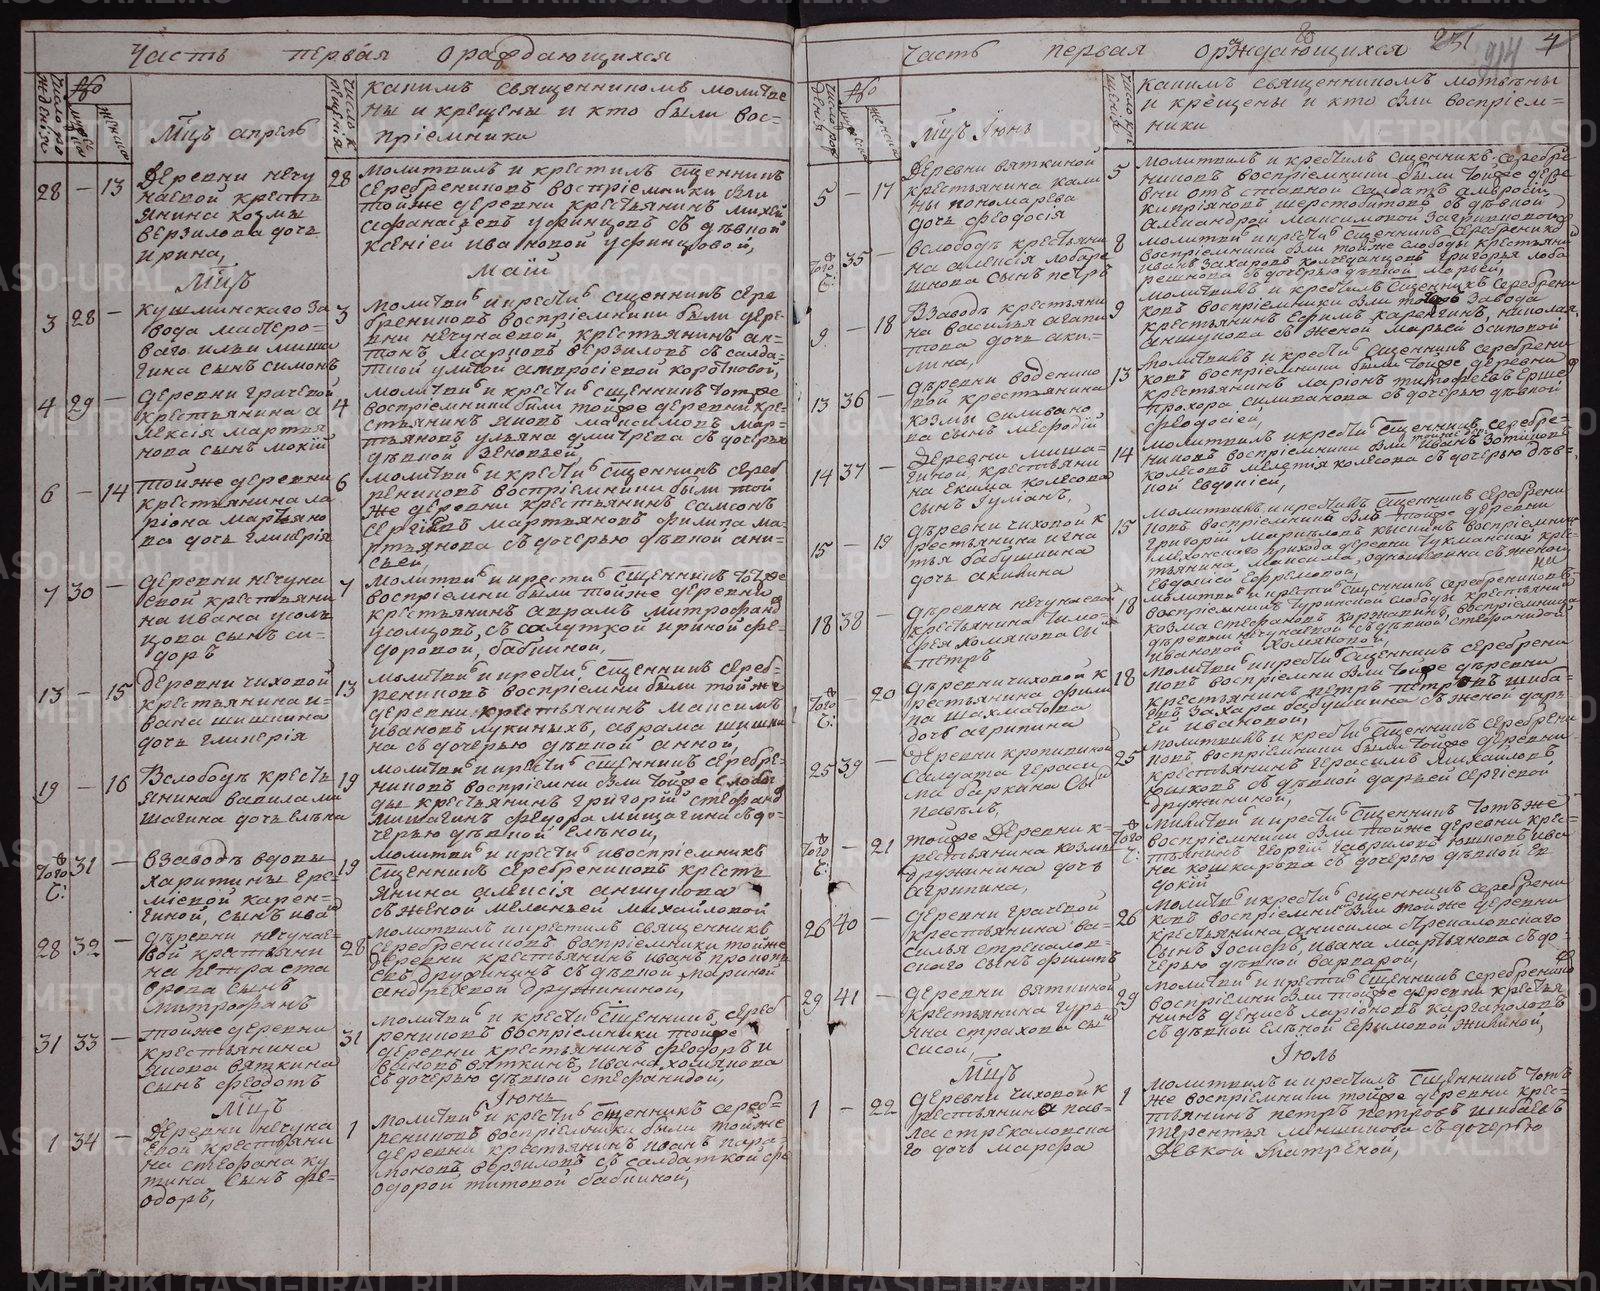 Часть первая о раждающихся
Число рождения
Число крещения
Мцъ апрель
какимъ священникомъ молитве
ны и крещены и кто были вос-
пріемники
28 — 13
Деревни нечу
наевой кресть
янина козмы
верзилова дочь
ирина,
28
молитвилъ и крестилъ сщенникъ
серебрениковъ воспріемники были
тойже деревни крестьянинъ михей
афанасьевъ усринцовъ съ дѣвкой
ксеніей ивановой усринцовой,
Мцъ Маій
3 28 —
кушминскаго за
вода мастеро-
ваго ильи миша
гина сынъ симонъ
3
молитви и крести сщенникъ сере
брениковъ воспріемники были дере-
вни нечунаевой крестьянинъ ан-
тонъ марковъ верзиловъ съ салда-
ткой улитой амвросіевой коротковой,
4 29 —
деревни грачевой
крестьянина а
лексія мартья
нова сынъ мокій
4
молитви и крести сщенникъ тотже
воспріемники были тойже деревни кре-
стьянинъ яковъ максимовъ мар-
тьяновъ ульяна дмитрева съ дочерью
дѣвкой зеновьей,
6 — 14
тойже деревни
крестьянина ла
ріона мартьяно
ва дочь гликерія
6
молитви и крести сщенникъ сереб
рениковъ воспріемники были той
же деревни крестьянинъ самсонъ
сергіевъ мартьяновъ филипа ма-
ртьянова съ дочерью дѣвкой ани-
сьей
7 30 —
деревни нечуна
евой крестьяни
на ивана усоль
цова сынъ си-
доръ
7
молитви и крести сщенникъ тотже
воспріемники были тойже деревни
крестьянинъ аврамъ митрофано
усолцовъ, съ салдаткой ириной фе-
доровой, бабкиной,
13 — 15
деревни чиховой
крестьянина и-
вана шишкина
дочь гликерія
13
молитви и крести сщенникъ сереб-
рениковъ воспріемни были тойже
деревни крестьянинъ максимъ
ивановъ лукиныхъ, аврама шишки
на съ дочерью дѣвкой анной,
19 — 16
Вслободѣ кресть
янина вавила ми
шагина дочь елѣна
19
молитви и крести сщенникъ серебре-
никовъ воспріемни были тойже слобо
ды крестьянинъ григорій стефано
мишагинъ федора мишагина съ до-
черью дѣвкой елѣной,
Того ч: 31 —
взаводѣ вдовы
харитины ере-
міевой карен-
гиной, сынъ иванъ
19
молитви и крести ивоспріемникъ
сщенникъ серебрениковъ кресть
янина алексія аншукова
съ женой меланьей михайловой
28 32 —
деревни нечунае-
вой крестьяни
на петра ста
хрова сынъ
митрофанъ
28
молитвилъ икрестилъ священникъ
серебрениковъ воспріемники тойже
деревни крестьянинъ иванъ прокопи
евъ дружининъ съ дѣвкой мариной
андреевой дружининой,
31 33 —
тойже деревни
крестьянина
якова вяткина
сынъ феодотъ
31
молитви и крести сщенникъ сереб
рениковъ воспріемники тойже
деревни крестьянинъ феодоръ и
вановъ вяткинъ, ивана хомякова
съ дочерью дѣвкой стефанидой,
Мцъ Іюнь
1 34 —
Деревни нечуна
евой крестьяни
на стефана ку
тина сынъ фе-
одоръ,
1
молитви и крести сщенникъ сереб-
рениковъ воспріемники были тойже
деревни крестьянинъ иванъ пара-
моновъ верзиловъ съ салдаткой фе
одорой титовой бабкиной,
Часть первая о рождающихся 4
Мцъ Іюнь
какимъ священникомъ молитвены
и крещены и кто были воспріем-
ники
5 — 17
Деревни вяткиной
крестьянина кали
ны пономарева
дочь феодосія
5
молитвилъ и крестилъ сщенникъ серебре
никовъ воспріемники были тойже дере
вни отставной салдатъ амвросій
кипріяновъ шерстобитовъ съ дѣвкой
александрой максимовой загривковой
Того ч: 35 —
вслободѣ крестьяни
на алексія лобаре
шнова сынъ петръ
8
молитви икрести сщенникъ серебренико
воспріемники были тойже слободы крестьяни
иванъ захаровъ колмаганцовъ григорья лоба
решнова съ дочерью дѣвкой марьей,
9 — 18
Взаводѣ крестьяни
на василья агапи
това дочь аки-
лина,
9
молитвилъ и крестилъ сщенникъ серебрени
ковъ воспріемники были тогоже завода
крестьянинъ ефимъ каренгинъ, николая
аншукова съ женой марьей осиповой
13 36 —
деревни воденико
вой крестьянина
козмы силивано
ва сынъ мефодій
13
молитвилъ и крести сщенникъ серебрени
ковъ воспріемники были тойже деревни
крестьянинъ ларіонъ тимофеевъ ершев
прохора силиванова съ дочерью дѣвкой
феодосіей,
14 37 —
Деревни миша-
гиной крестьяни
на екима колесова
сынъ іуліанъ,
14
молитвилъ икрести сщенникъ серебре-
никовъ воспріемники были иванъ зотиковъ
колесовъ мелетія колесова съ дочерью дѣв-
кой евдокіей,
15 — 19
деревни чиховой к
рестьянина игна
тья бабушкина
дочь акилина
15
молитвилъ икрестилъ сщенникъ серебрени
ковъ воспріемники были тойже деревни
григорій марковъ кискинъ воспріемница
мехонскаго прихода деревни тукманской кре-
стьянина максима, одношивина съ женой
евдокіей ефремовой,
18 38 —
деревни нечунаевой
крестьянина тимо-
фея хомякова сы
петръ
18
молитви икрести сщенникъ серебрениковъ
воспріемникъ туринской слободы крестьяни
козма стефановъ коржавинъ, воспріемница
деревни нечунаевой съ дѣвкой стефанидой
ивановой хомяковой,
Того ч: — 20
деревни чиховой к
рестьянина фили
па шахматова
дочь агрипина
18
молитви икрести сщенникъ серебрени
ковъ воспріемни были тойже деревни
крестьянинъ петръ петровъ шиба-
евъ захара бабушкина съ женой дарь
ей ивановой,
25 39 —
деревни кропивиной
салдата гераси
ма баркина сы
павелъ,
25
молитвилъ и крести сщенникъ серебрени
ковъ воспріемники были тойже деревни
крестьянинъ герасимъ михайловъ
юшковъ съ дѣвкой дарьей сергіевой,
дружининой,
Того ч: — 21
тойже деревни к-
рестьянина козмы
дружинина дочь
агрипина,
Того ч:
молитви и крести сщенникъ тотъже
воспріемники были тойже деревни крес-
тьянинъ георгій гавриловъ юшковъ ива
на кошкарова съ дочерью дѣвкой ев
докій
26 40 —
деревни грачевой
крестьянина ва-
силья стрекалов-
скаго сынъ филипъ
26
молитви икрести сщенникъ серебрени
ковъ воспріемники были тойже деревни
крестьянина анисима стрекаловскаго
сынъ іосифъ, ивана мартьянова съ до-
черью дѣвкой варварой,
29 41 —
деревни вяткиной
крестьянина гурь
яна страхова сы
сисой,
29
молитви и крести сщенникъ серебренико
воспріемни были тойже деревни крестья
нинъ денисъ ларіоновъ каргаполовъ
съ дѣвкой елѣной ефимовой жикиной,
Мцъ Іюль
1 — 22
деревни чиховой к
рестьянина пав-
ла стрекаловска
го дочь марфа
1
молитвилъ и крестилъ сщенникъ тотъ
же воспріемники тойже деревни крес-
тьянинъ петръ петровъ шибаевъ
терентья меншикова съ дочерью
девкой матреной,